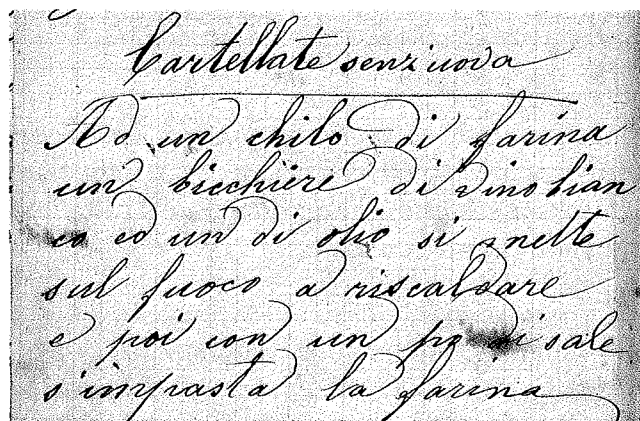 Cartellate senz'uova
Ad un chilo di farina
un bicchiere di vino bian
co ed un di olio si mette
sul fuoco a riscaldare
e poi con un po di sale
s'impasta la farina